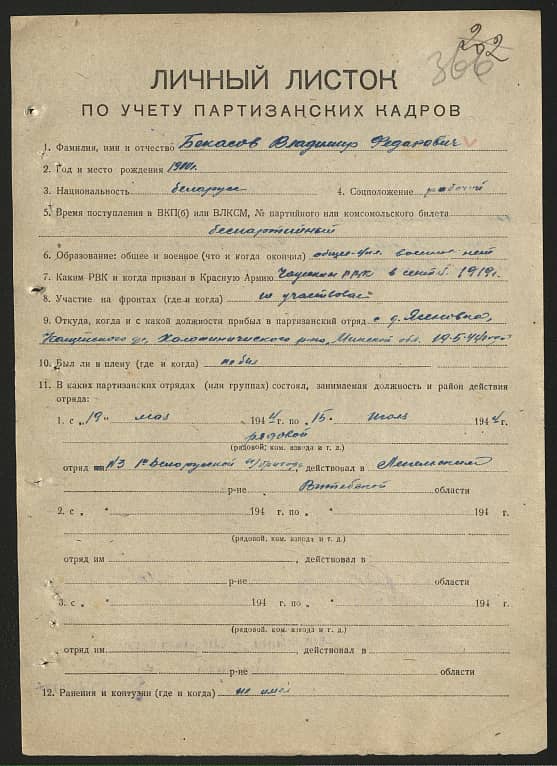 366
202
ЛИЧНЫЙ ЛИСТОК
ПО УЧЕТУ ПАРТИЗАНСКИХ КАДРОВ
1. Фамилия, имя и отчество Бекасов Владимир
2. Год и место рождения 1900г.
3. Национальность беларус 4. Соцположение рабочий
5. Время поступления в ВКП(б) или ВЛКСМ, № партийного или комсомольского билета
беспартийный
6. Образование: общее и военное (что и когда окончил) общее-4кл. военное нет
7. Каким РВК и когда призван в Красную Армию Чаусским РВК в сентяб. 1919г.
8. Участие на фронтах (где и когда) не участвовал
9. Откуда, когда и с какой должности прибыл в партизанский отряд с д. Ясеновка,
с/с, Холопеничского р-на, Минской обл. 19-5-44
10. Был ли в плену (где и когда) не был
11. В каких партизанских отрядах (или группах) состоял, занимаемая должность и район действия
отряда:
1. с „19" мая 1944 г. по „15" июля 1944 г.
рядовой
(рядовой, ком. взвода и т. д.)
отряд №3 1й Белорусской п/бригады, действовал в Лепельском
р-не Витебской области
2. с „ " 194 г. по „ " 194 г.
(рядовой, ком. взвода и т. д.)
отряд им , действовал в
р-не области
3. с „ " 194 г. по „ " 194 г.
(рядовой, ком. взвода и т. д.)
отряд им , действовал в
р-не области
12. Ранения и контузии (где и когда) не имел